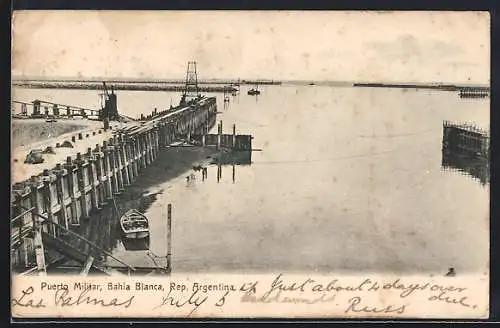 Puerto Militar, Bahia Blanca, Rep. Argentina
Just about 4 days over
Las Palmas July 5 Russ due.